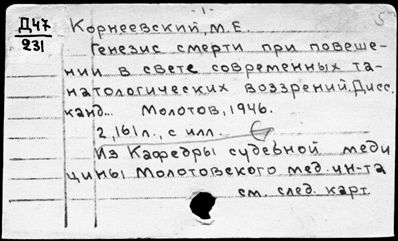 - 1 -
5
Д47
231
Корнеевский, М.Е.
Генезис смерти при повеше-
нии в свете современных та-
натологических воззрений. Дисс.
канд... Молотов, 1946.
2, 161 л., с илл.
Из Кафедры судебной меди
цины Молотовского мед. ин-та
см. след. карт.